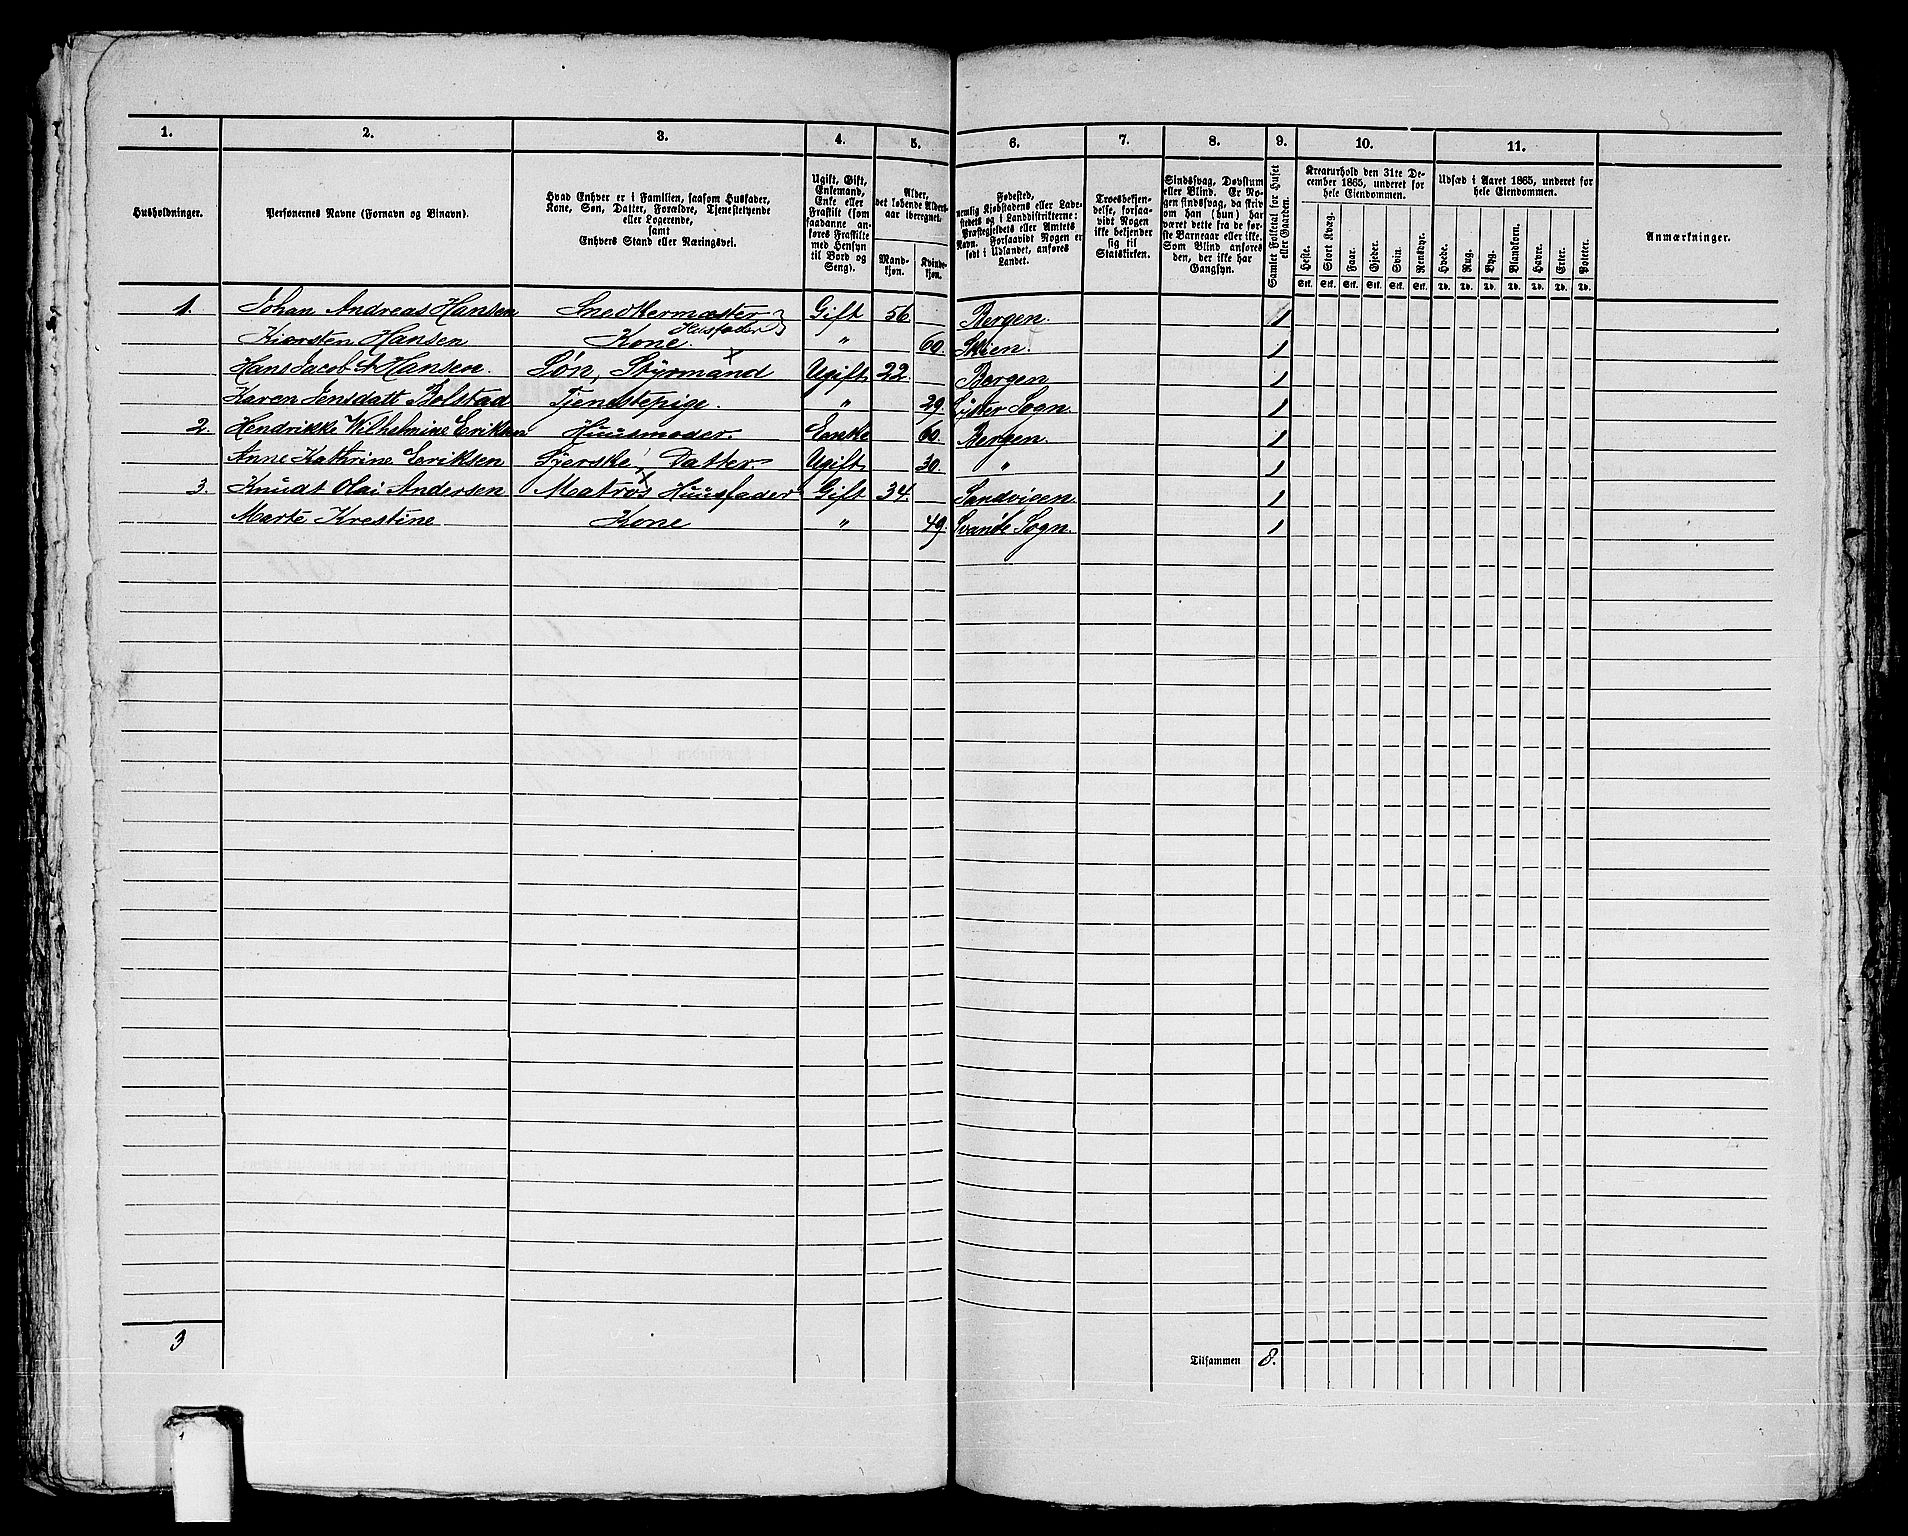 1. 2. 3. 4. 5. 6. 7. 8. 9. 10. 11.
Husholdninger.
Personernes Navne (Fornavn og Binavn).
Hvad Enhver er i Familien, saasom Husfader,
Kone, Søn, Datter, Forældre, Tjenestetyende
eller Logerende,
samt
Enhvers Stand eller Næringsvei.
Ugift, Gift,
Enkemand,
Enke eller
Fraskilt (som
saadanne an-
føres Fraskilte
med Hensyn
til Bord og
Seng).
Alder,
det løbende Alders-
aar iberegnet.
Mand-
kjøn.
Kvinde-
kjøn.
Fødested,
nemlig Kjøbstadens eller Lade-
stedets og i Landdistrikterne:
Præstegjeldets eller Amtets
Navn. Forsaavidt Nogen er
født i Udlandet, anføres
Landet.
Troesbekjen-
delse, forsaa-
vidt Nogen
ikke bekjender
sig til
Statskirken.
Sindssvag, Døvstum
eller Blind. Er No-
gen sindssvag, da skriv
om han (hun) har
været dette fra de før-
ste Barneaar eller ikke.
Som Blind anføres
den, der ikke har
Gangsyn.
Samlet Folketal for Huset
eller Gaarden.
Kreaturhold den 31te De-
cember 1865, underet for
hele Eiendommen.
Heste. Stort Kvæg. Faar. Gjeder. Svin. Rensdyr.
Stk. Stk. Stk. Stk. Stk. Stk.
Udsæd i Aaret 1865, underet for
hele Eiendommen.
Hvede. Rug. Byg. Blandkorn. Havre. Erter. Poteter.
Td. Td. Td. Td. Td. Td. Td.
Anmærkninger.
1. Johan Andreas Hansen Snedkermæster Husfader Gift 56 Bergen. 1
Kiersten Hansen Kone. " 60. Skien. 1
Hans Jacob A Hansen. Søn, Styrmand Ugift 22. Bergen 1
Karen Jensdatt Bolstad Tjenestepige. " 29. Lyster Sogn. 1
2. Hendrikke Wilhelmine Eriksen Huusmoder. Enske 60. Bergen. 1
Anne Kathrine Eriksen Syerske, Datter Ugift 30. " 1
3. Knudt Olai Andersen Matros Huusfader Gift 34. Sandvigen. 1
Marte Krestine Kone " 49. Svanøe Sogn. 1
3 Tilsammen 8.